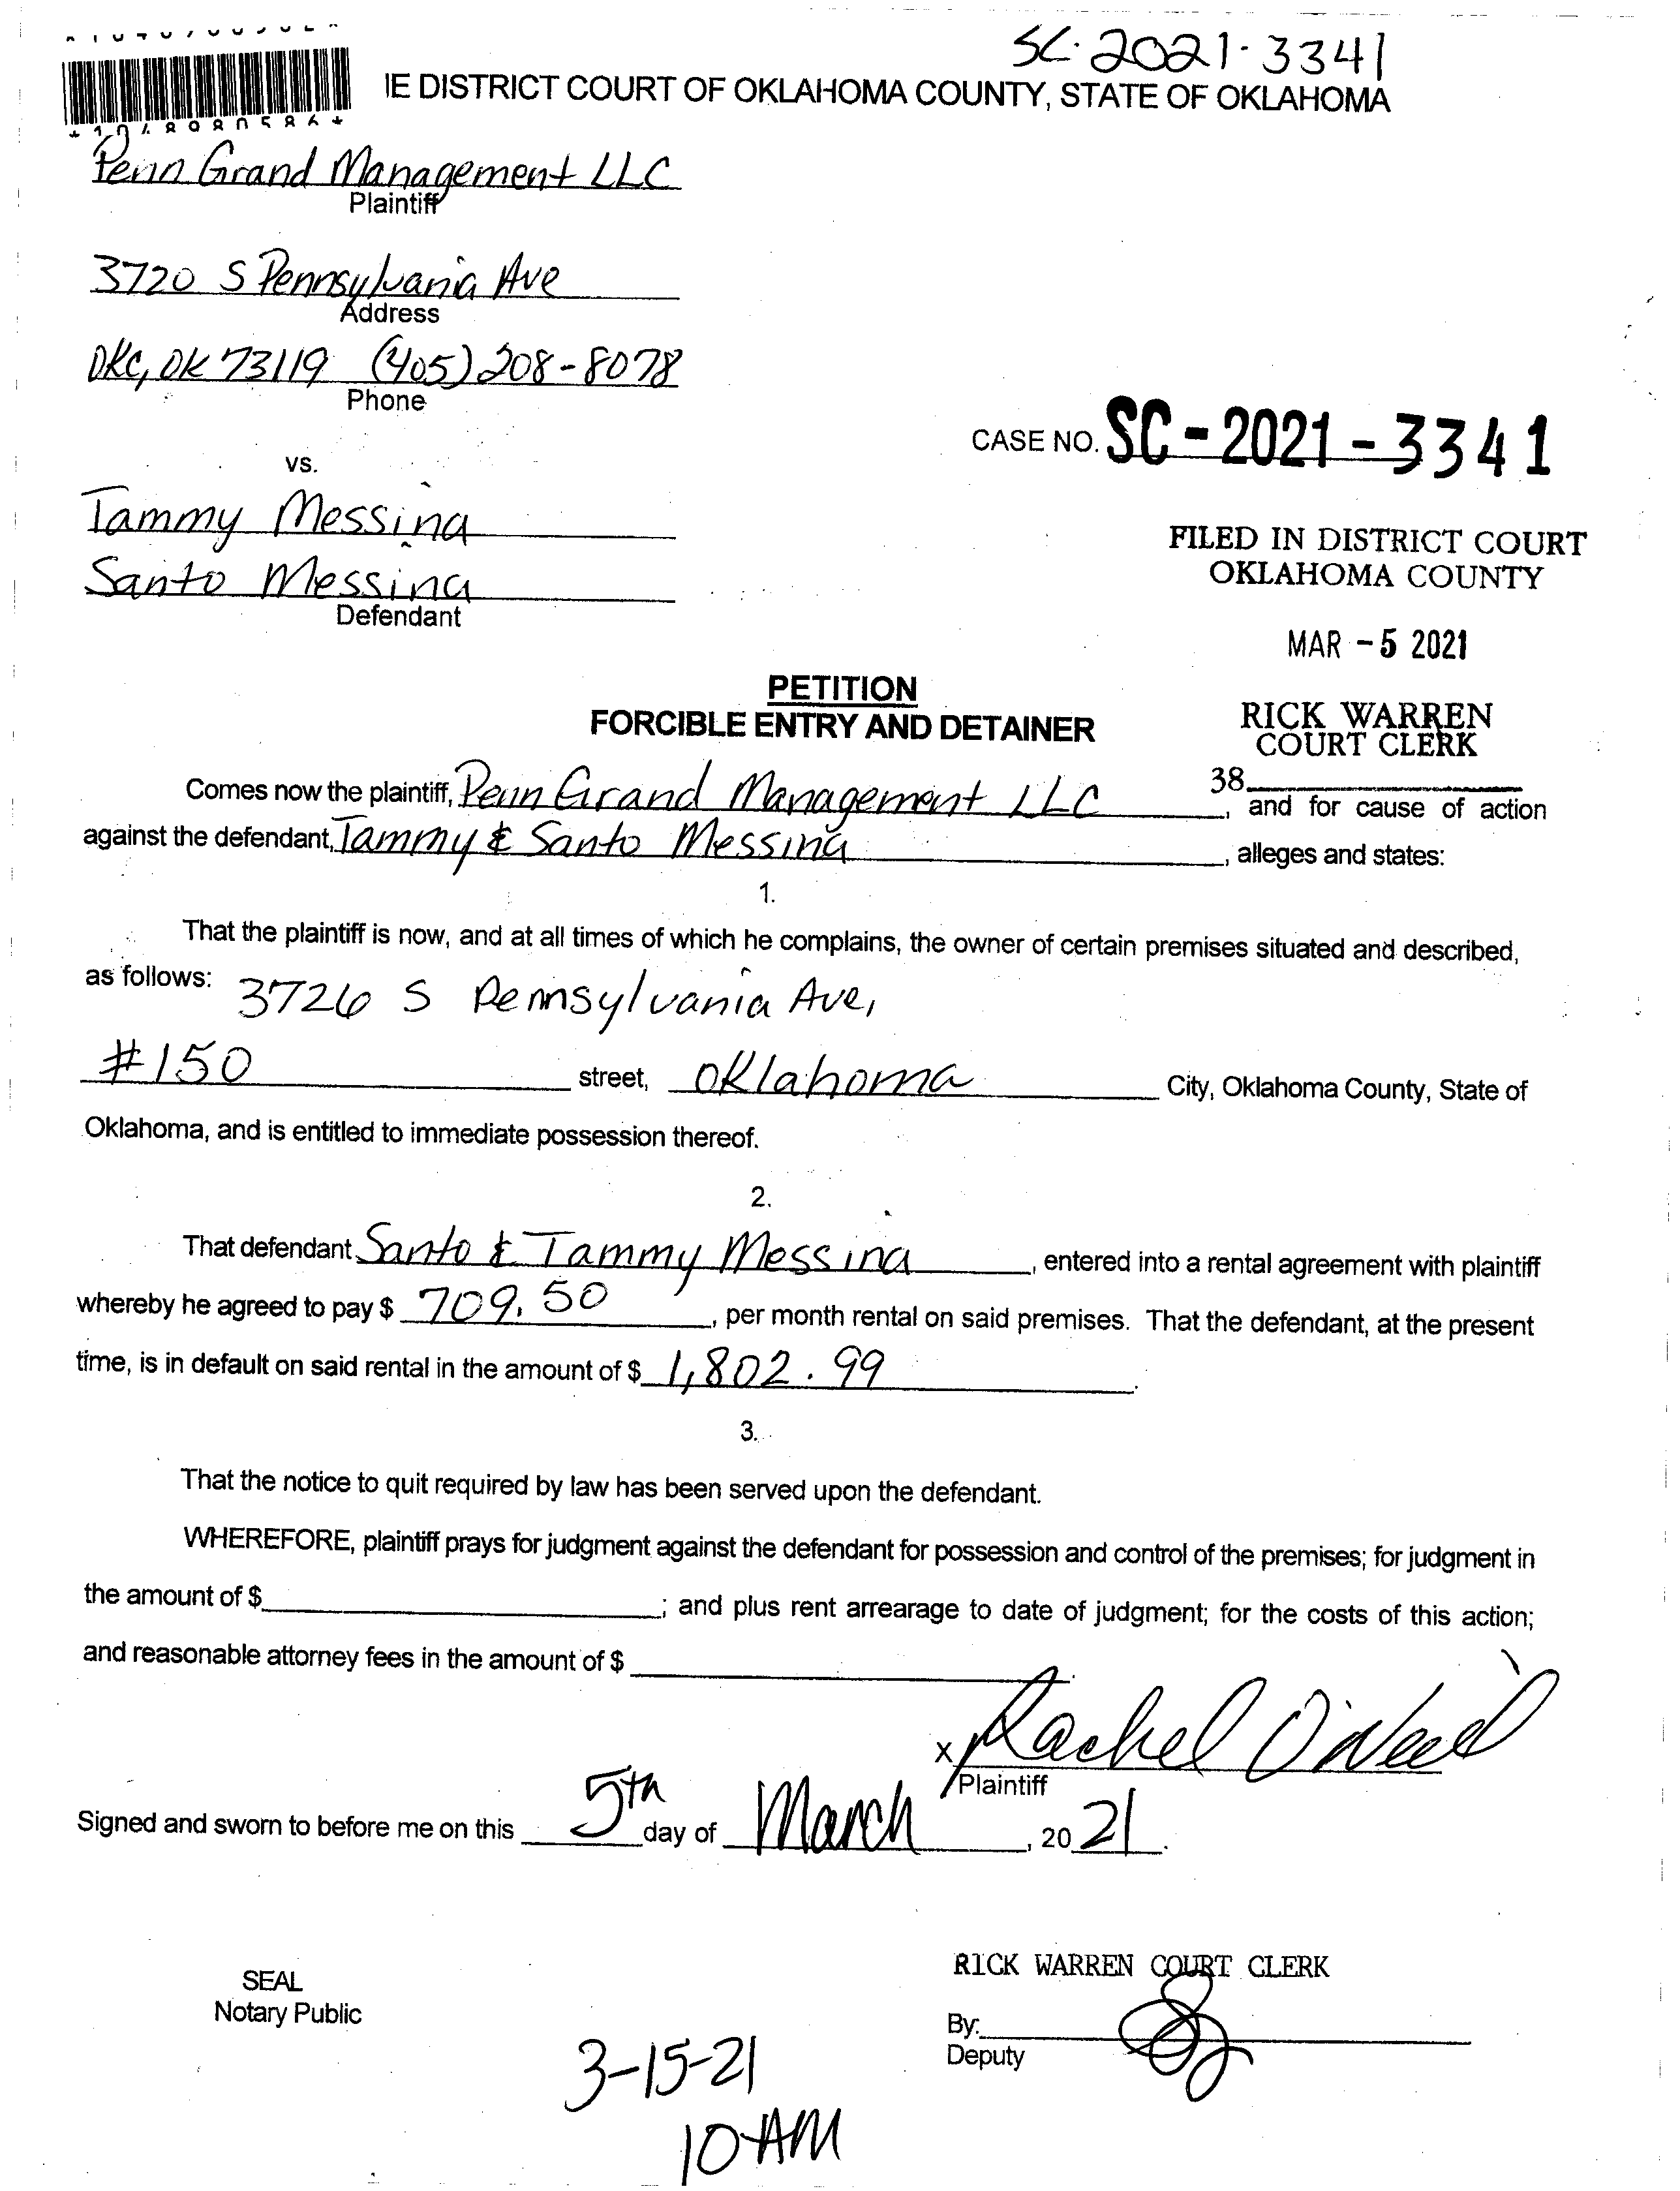 SC-2021-3341
IE DISTRICT COURT OF OKLAHOMA COUNTY, STATE OF OKLAHOMA
Penn Grand Management LLC
Plaintiff
3720 S Pennsylvania Ave
Address
OKC, OK 73119 (405) 208-8078
Phone
CASE NO. SC-2021-3341
vs.
Tammy Messina
Santo Messina
Defendant
FILED IN DISTRICT COURT
OKLAHOMA COUNTY
MAR -5 2021
RICK WARREN
COURT CLERK
38
PETITION
FORCIBLE ENTRY AND DETAINER
Comes now the plaintiff, Penn Grand Management LLC, and for cause of action
against the defendant, Tammy & Santo Messina, alleges and states:
1.
That the plaintiff is now, and at all times of which he complains, the owner of certain premises situated and described,
as follows: 3726 S Pennsylvania Ave,
#150 street, Oklahoma City, Oklahoma County, State of
Oklahoma, and is entitled to immediate possession thereof.
2.
That defendant Santo & Tammy Messina, entered into a rental agreement with plaintiff
whereby he agreed to pay $ 709.50, per month rental on said premises. That the defendant, at the present
time, is in default on said rental in the amount of $ 1,802.99.
3.
That the notice to quit required by law has been served upon the defendant.
WHEREFORE, plaintiff prays for judgment against the defendant for possession and control of the premises; for judgment in
the amount of $ ; and plus rent arrearage to date of judgment; for the costs of this action;
and reasonable attorney fees in the amount of $ .
x Rachel O'Neal
Plaintiff
Signed and sworn to before me on this 5th day of March, 2021.
SEAL
Notary Public
RICK WARREN COURT CLERK
By:
Deputy
3-15-21
10 AM